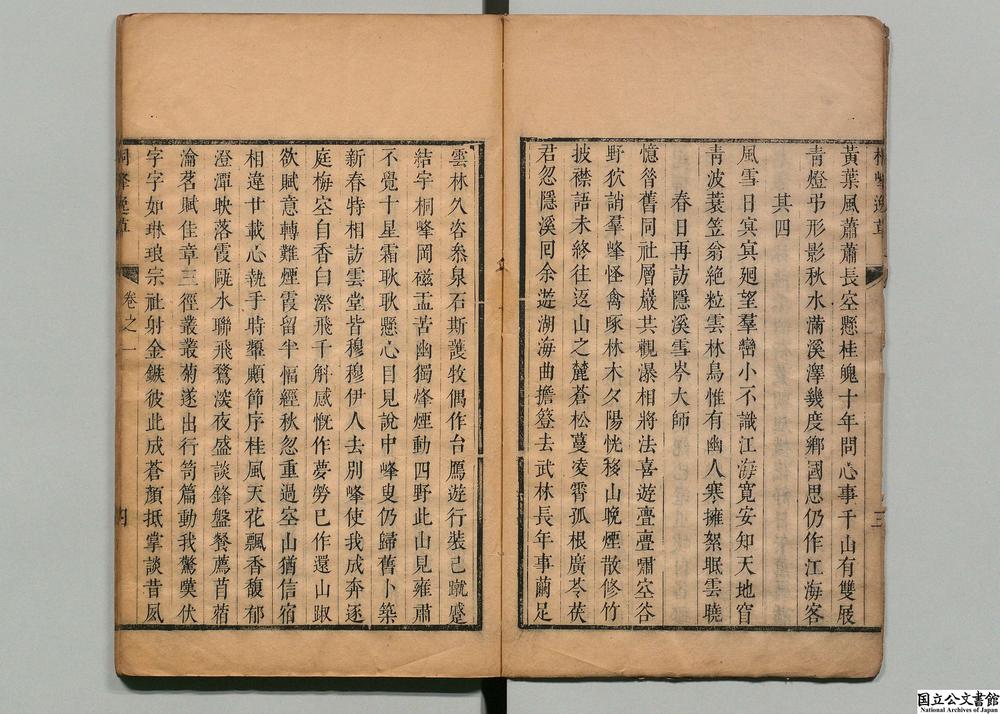 桐峰逸草
三
黃葉風蕭蕭長空懸桂魄十年問心事千山有雙屐
青燈弔形影秋水滿溪澤幾度鄉國思仍作江海客
其四
風雪日冥冥迴望羣巒小不識江海寬安知天地窅
靑波蓑笠翁絶粒雲林鳥惟有幽人寒擁絮眠雲曉
春日再訪隱溪雪岑大師
憶昝舊同社層巖共觀瀑相將法喜遊亹亹嘯空谷
野狖誚羣峰怪禽啄林木夕陽恍移山晚煙散修竹
披襟語未終往返山之麓蒼松蔓凌霄孤根廣苓茯
君忽隱溪囘余遊湖海曲擔簦去武林長年事繭足
雲林久咨叅泉石斯護牧偶作台鴈遊行裝已蹴蹙
結宇桐峰岡磁盂苦幽獨烽煙動四野此山見雍肅
不覺十星霜耿耿懸心目見說中峰叟仍歸舊卜築
新春特相訪雲堂皆穆穆伊人去別峰使我成奔逐
庭梅空自香白漈飛千斛感慨作夢勞已作還山踧
欲賦意轉難煙霞留半幅經秋忽重過空山猶信宿
相違廿載心執手時顰顣節序桂風天花飄香馥郁
澄潭映落霞瓯水聯飛鶩深夜盛談鋒盤餐薦苜蓿
瀹茗賦佳章三徑叢叢菊遂出行笥篇動我驚嘆伏
字字如琳琅宗社射金鏃彼此成蒼顏抵掌談昔夙
桐峰逸草
卷之一
四
国立公文書館
National Archives of Japan